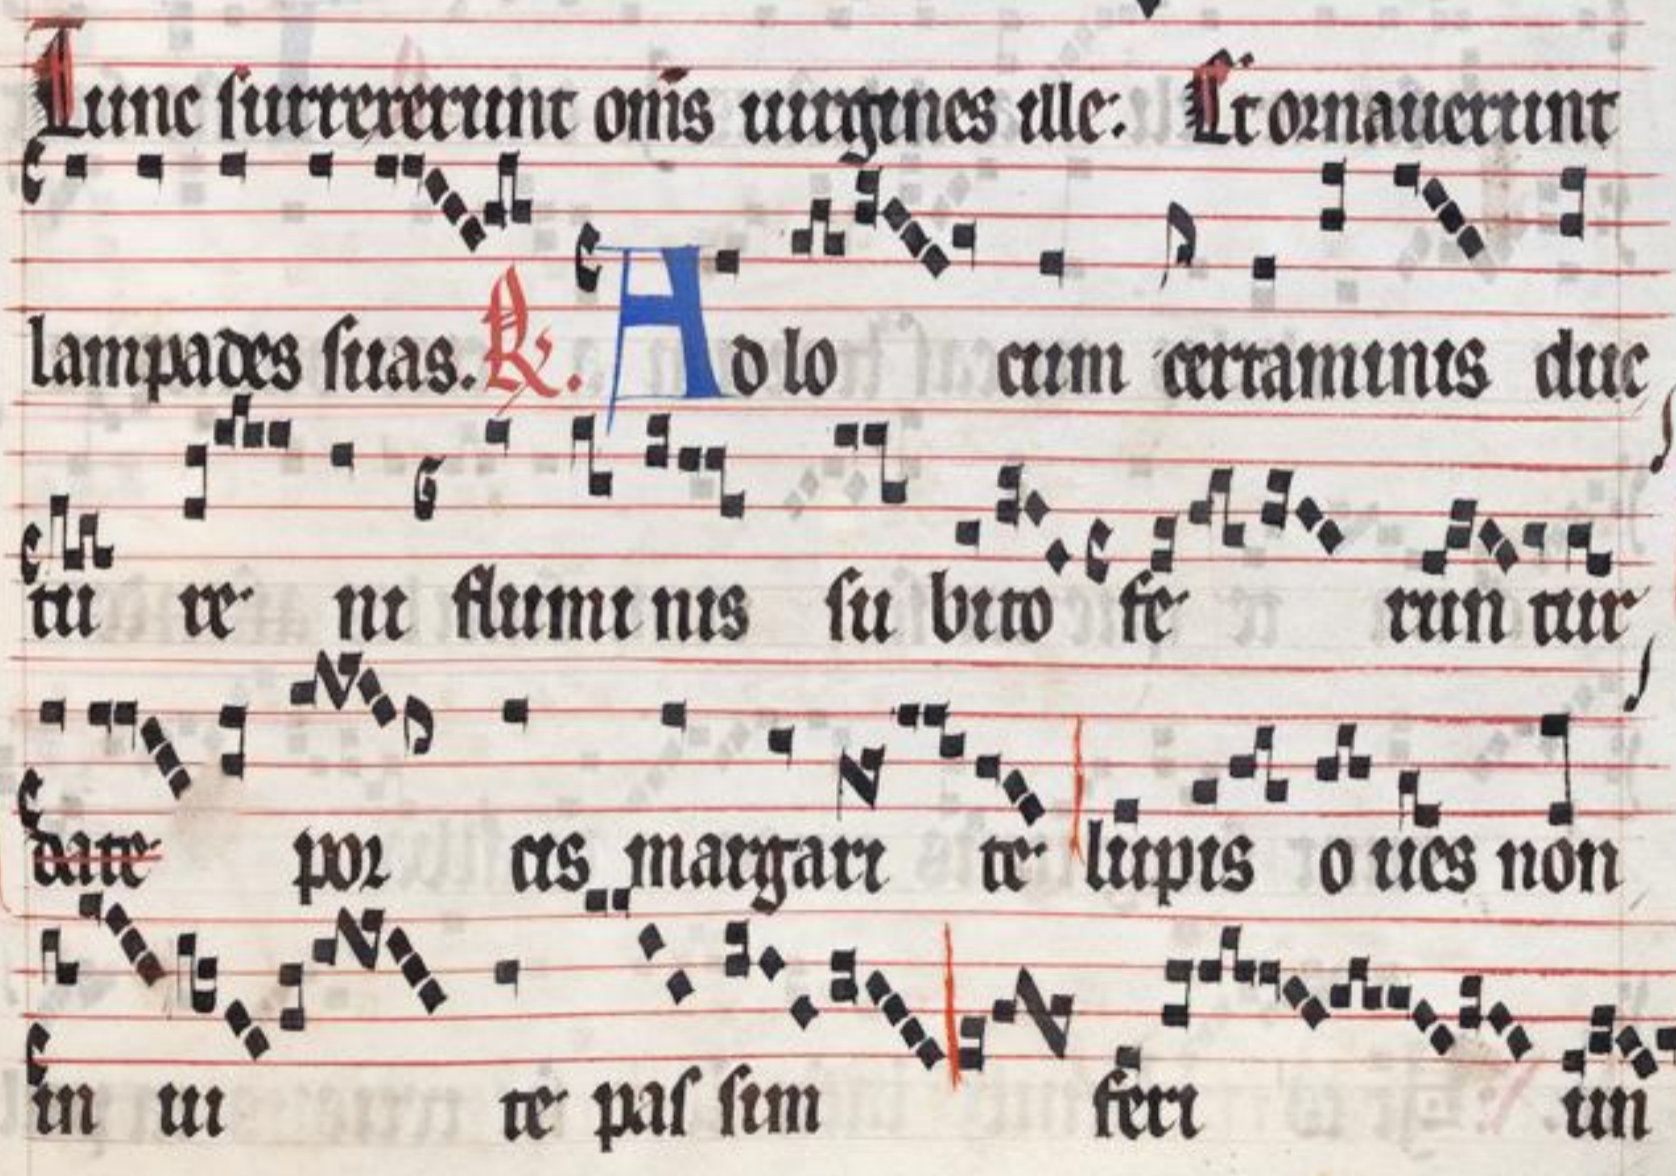 Tunc surrexerunt om̅s uirgines ille. Et ornauerunt
lampades suas. R. Ad lo cum certaminis duc
tu re ni flumi nis su bito fe run tur
date por cis margari te lupis o ues non
in ui te pas sim feri un